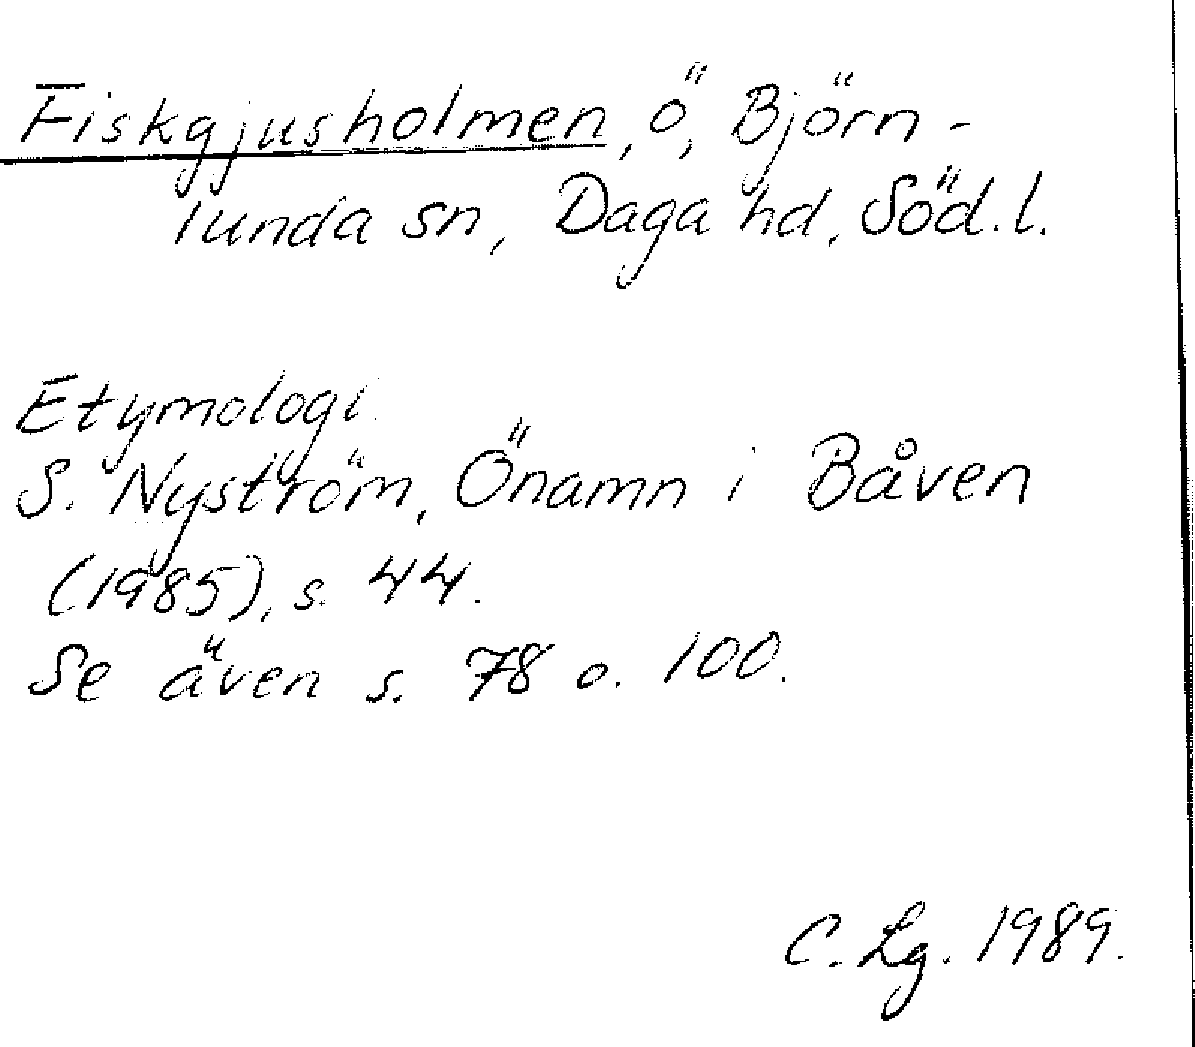 Fiskgjusholmen, ö, Björn-
lunda sn, Daga hd, Söd. l.
Etymologi.
S. Nyström, Önamn i Båven
(1985), s. 44.
Se även s. 78 o. 100.
C. Lg. 1989.